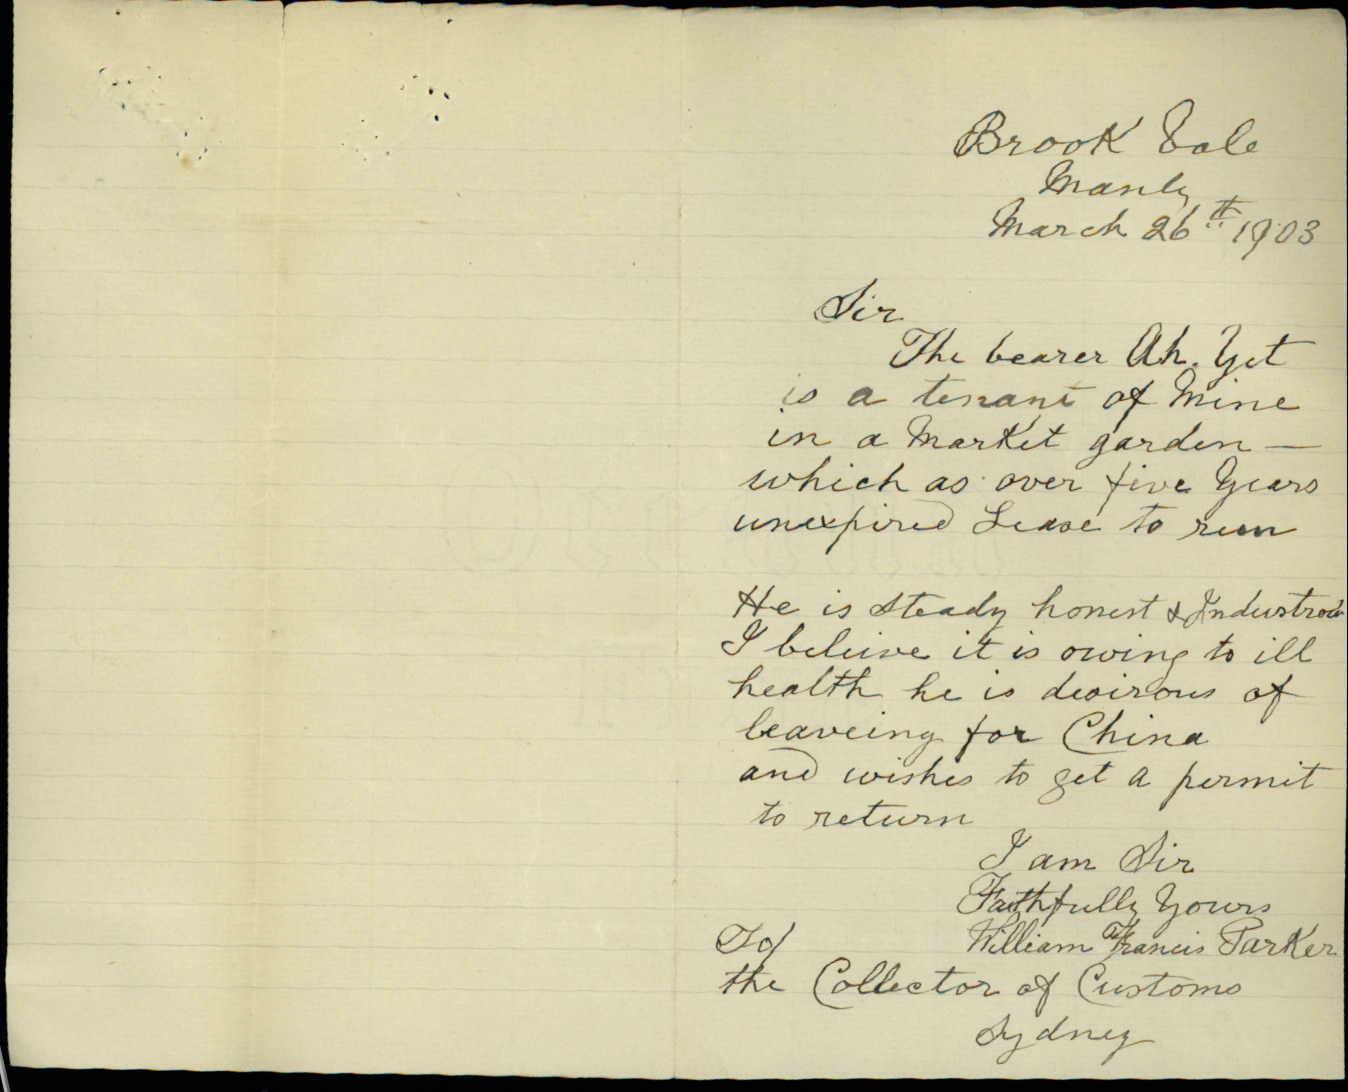 Brook Vale
Manly
March 26th 1903
Sir
The bearer Ah. Yet
is a tenant of Mine
in a Market garden —
which as over five Years
unexpired Lease to run
He is steady honest & Industrous
I beleive it is owing to ill
health he is desirous of
leaveing for China
and wishes to get a permit
to return
I am Sir
Faithfully Yours
William Francis Parker
To/
the Collector of Customs
Sydney